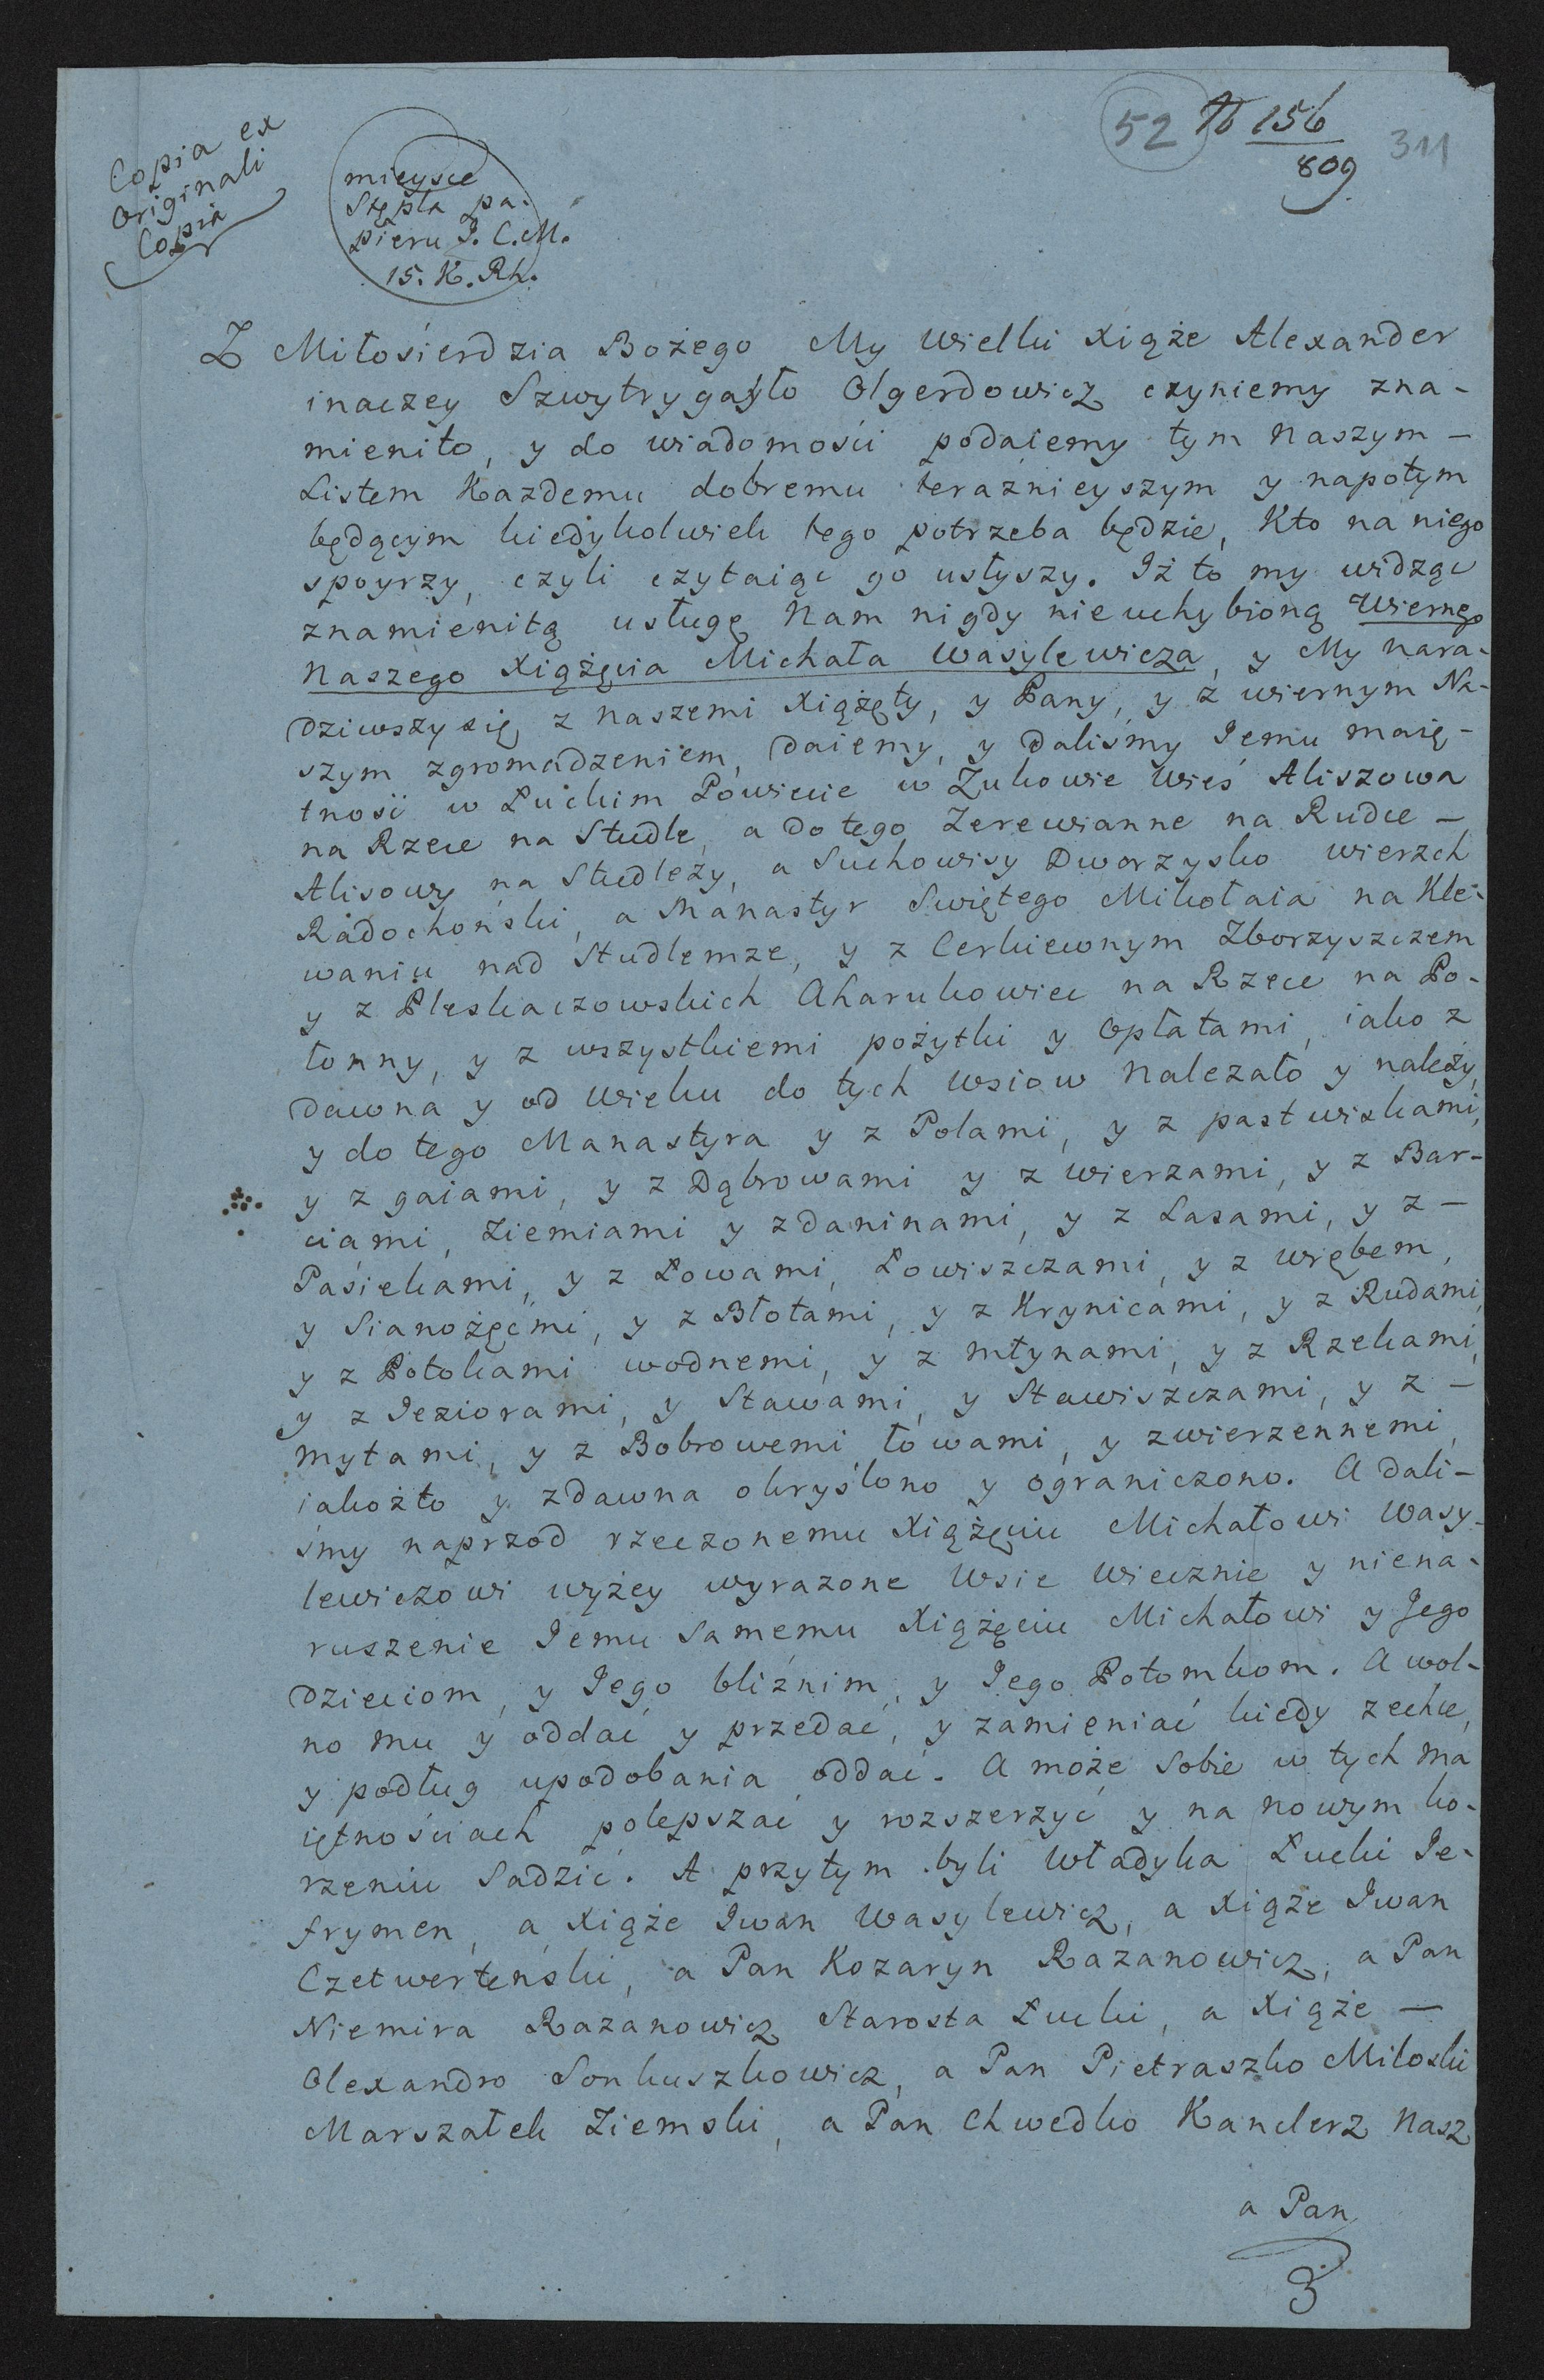 Copia ex
Originali
Copia
mieysce
Stępla pa-
pieru J. C. M.
15. K. Rh.
52 № 156
809
311
Z Miłosierdzia Bożego My Wielki Xiąże Alexander
inaczey Szwytrygayło Olgerdowicz czyniemy zna-
mienito, y do wiadomości podaiemy tym Naszym –
Listem Kazdemu dobremu teraznieyszym y napotym
będącym kiedykolwiek tego potrzeba będzie, Kto na niego
spoyrzy, czyli czytaiąc go usłyszy. Iż to my widząc
znamienitą usługę Nam nigdy nieuchybioną Wiernego
Naszego Xiążęcia Michała Wasylewicza, y My nara-
dziwszy się z naszemi Xiążęty, y Pany, y z wiernym Na-
szym zgromadzeniem, daiemy, y daliśmy Iemu maię-
tność w Łuckim Powiecie w Zukowie Wieś Aliszowa
na Rzece na Studle, a do tego Zerewianne na Rudce –
Alisowy na Studleży, a Suchowisy Dworzysko wierzch
Radochoński, a Manastyr Swiętego Mikołaia na Kle-
waniu nad Studlemze, y z Cerkiewnym Zborzyszczem
y z Pleskaczowskich Aharukowiec na Rzece na Po-
łonny, y z wszystkiemi pożytki y Opłatami, iako z
dawna y od wieku do tych wsiow Nalezało y należy,
y do tego Manastyra y z Polami, y z pastwiskami,
y z gaiami, y z Dąbrowami y z wierzami, y z Bar-
ciami, Ziemiami y z daninami, y z Lasami, y z –
Pasiekami, y z Łowami, Łowiszczami, y z wrębem,
y Sianożęćmi, y z Błotami, y z Krynicami, y z Rudami,
y z Potokami wodnemi, y z młynami, y z Rzekami,
y z Ieziorami, y Stawami, y Stawiszczami, y z –
mytami, y z Bobrowemi łowami, y zwierzennemi,
iakożto y zdawna okryślono y ograniczono. A dali-
śmy naprzod rzeczonemu Xiążęciu Michałowi Wasy-
lewiczowi wyżey wyrazone Wsie Wiecznie y niena-
ruszenie Iemu Samemu Xiążęciu Michałowi y Jego
dzieciom, y Jego bliźnim, y Jego Potomkom. A wol-
no mu y oddać y przedać, y zamieniać kiedy zechce,
y podług upodobania oddać. A może Sobie w tych ma
iętnościach polepszać y rozszerzyć y na nowym ko-
rzeniu Sadzić. A przytym byli Władyka Łucki Je-
frymen, a Xiąże Jwan Wasylewicz, a Xiąże Jwan
Czetwerteński, a Pan Kozaryn Razanowicz, a Pan
Niemira Razanowicz Starosta Łucki, a Xiąże –
Olexandro Sonkuszkowicz, a Pan Pietraszko Miloski
Marszałek Ziemski, a Pan Chwedko Kanclerz Nasz
a Pan